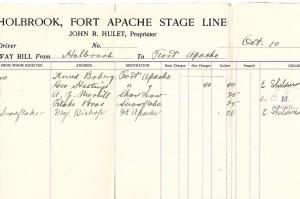 HOLBROOK, FORT APACHE STAGE LINE
JOHN R. HULET, Proprietor
Driver No. Oct. 10
WAY BILL From Holbrook To Fort Apache
FROM WHOM RECEIVED ADDRESS DESTINATION Back Charges Our Charges Collect Prepaid
Knud Boberg Fort Apache
Geo Hastings " " 40 40 E
A. J. Merrill Show Low 45
Flake Bros Snowflake 75
Snowflake Maj Bishop Ft Apache 25 E